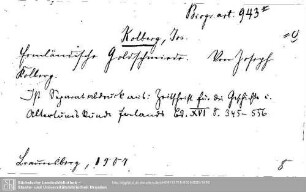 Biogr. art. 943 m
Kolberg, Jos.
Ermländische Goldschmiede. Von Joseph
Kolberg.
Ist Separatabdruck aus: Zeitschrift für die Geschichte u.
Altertumskunde Ermlands Bd. XVI S. 345-556
Braunsberg, 1907
8